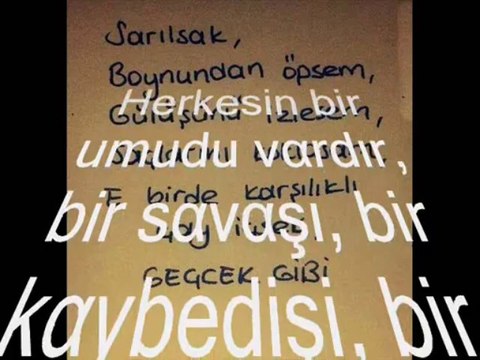 Sarılsak,
Boynundan öpsem,
Gülüşünü izlesem,
E birde karşılıklı
GEÇCEK GİBİ
Herkesin bir
umudu vardır,
bir savaşı, bir
kaybedişi, bir